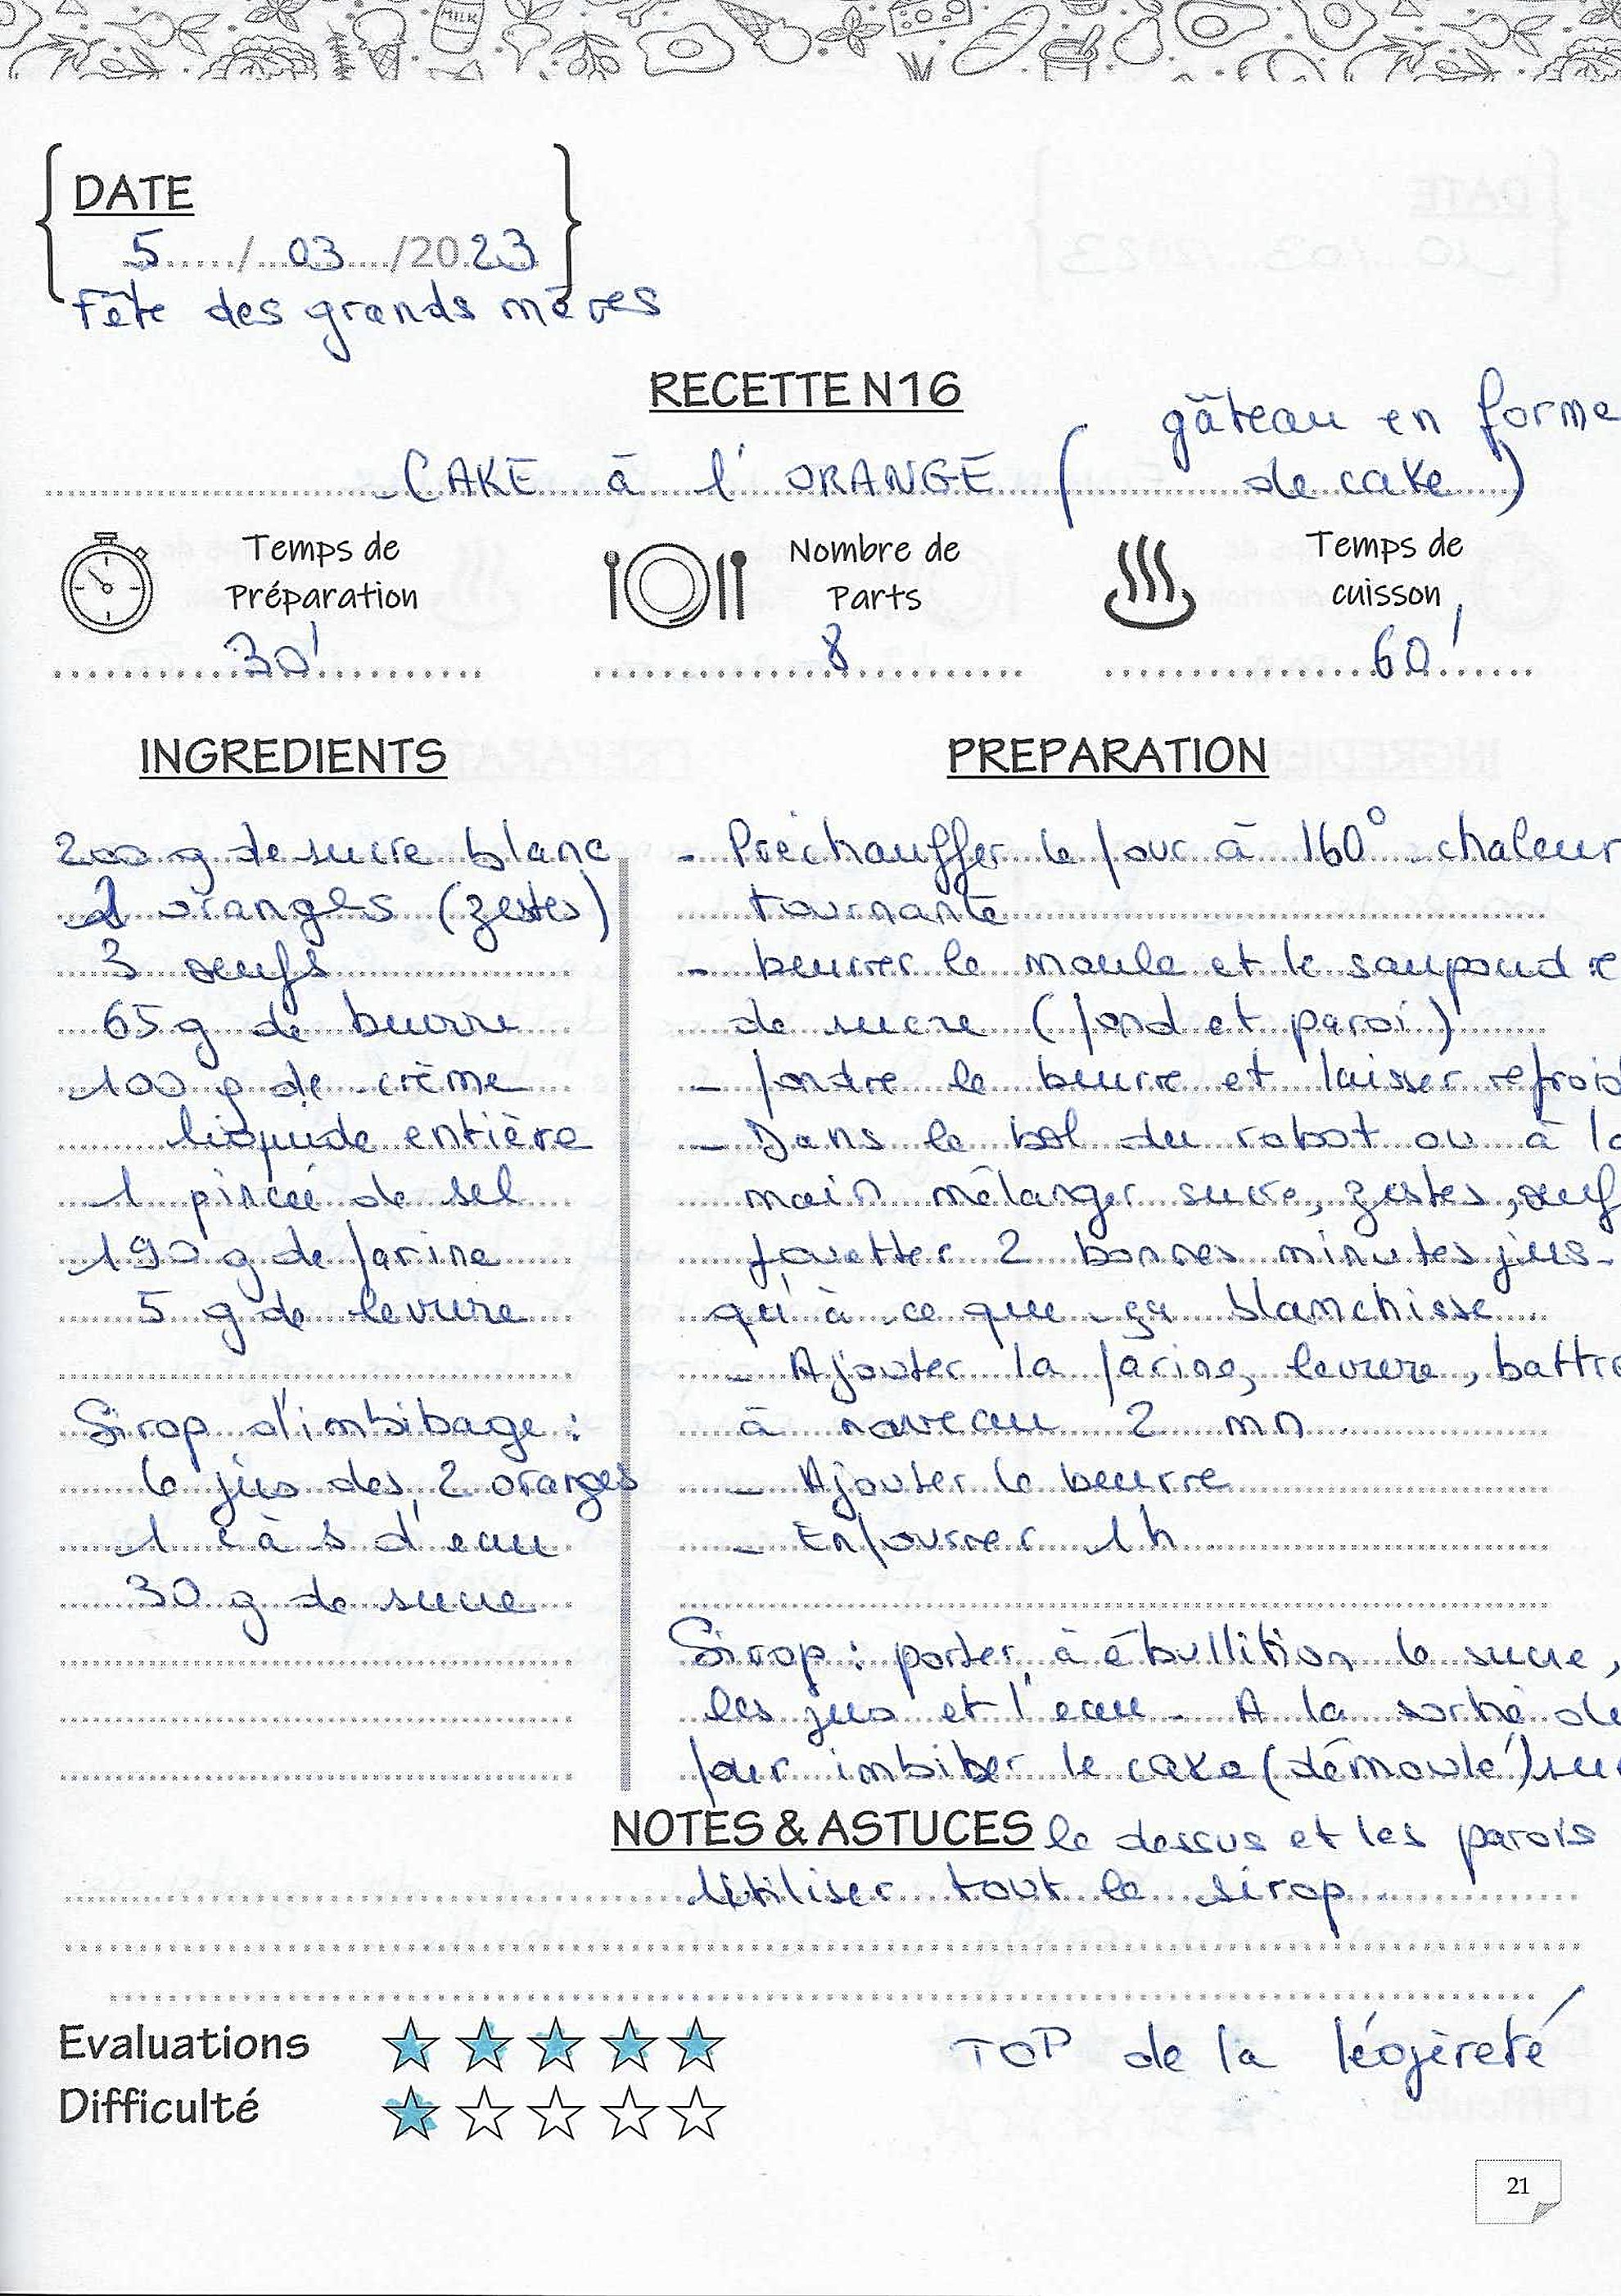 MILK
DATE
5 / 03 /2023
Fête des grands mères
RECETTE N16
gâteau en forme
CAKE à l'ORANGE ( de cake )
Temps de
Préparation
30'
Nombre de
Parts
8
Temps de
cuisson
60'
INGREDIENTS
200 g de sucre blanc
2 oranges (zestes)
3 oeufs
65 g de beurre
100 g de crème
liquide entière
1 pincée de sel
190 g de farine
5 g de levure
Sirop d'imbibage :
le jus des 2 oranges
1 c à s d'eau
30 g de sucre
PREPARATION
- Préchauffer le four à 160° chaleur
tournante
- beurrer le moule et le saupoudre
de sucre (fond et paroi)
- fondre le beurre et laisser refroid
- Dans le bol du robot ou à la
main mélanger sucre, zestes, oeuf
fouetter 2 bonnes minutes jus-
qu'à ce que ça blanchisse
- Ajouter la farine, levure, battre
à nouveau 2 mn
- Ajouter le beurre
- Enfourner 1h
Sirop : porter à ébullition le sucre,
les jus et l'eau - A la sortie de
four imbiber le cake (démoulé) sur
NOTES & ASTUCES
le dessus et les parois
Utiliser tout le sirop
Evaluations
Difficulté
TOP de la légèreté
21